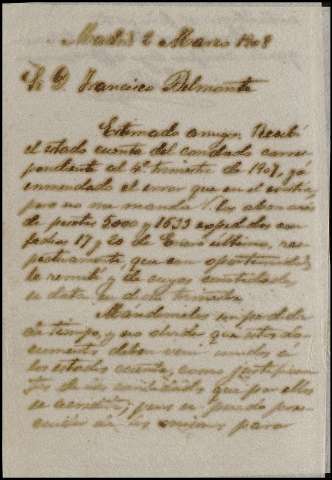 Madrid 2 Marzo 1908
Sr D. Francisco Belmonte
Estimado amigo: Recibí
el estado cuenta del condado corres-
pondiente al 4º trimestre de 1907, ya
enmendado el error que en él existía,
pero no me manda los abonarés
de pesetas 5000 y 1633 expedidos con
fechas 17 y 20 de Enero último, res-
pectivamente, que con oportunidad
le remití, y de cuyas cantidades
se data en dicho trimestre
Mándemelos sin pérdida
de tiempo, y no olvide que estos do-
cumentos deben venir unidos a
los estados cuenta, como justifican-
tes de las cantidades que por ellos
se acredita, pues no puedo pres-
cindir de los mismos para